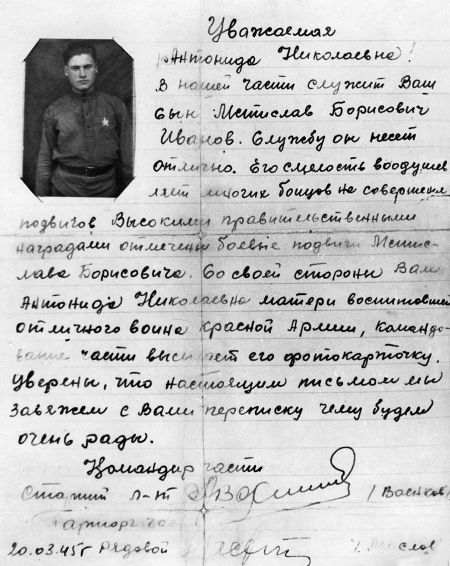 Уважаемая
Антонида Николаевна!
В нашей части служит Ваш
сын Мстислав Борисович
Иванов. Службу он несет
отлично. Его смелость воодушев
ляет многих бойцов на совершение
подвигов Высокими правительственными
наградами отмечены боевые подвиги Мстис-
лава Борисовича. Со своей стороны Вам
Антонида Николаевна матери воспитавшей
отличного воина Красной Армии, командо-
вание части высылает его фотокарточку.
Уверены, что настоящим письмом мы
завяжем с Вами переписку чему будем
очень рады.
Командир части
Старший л-нт
Парторг части
20.03.45г Рядовой